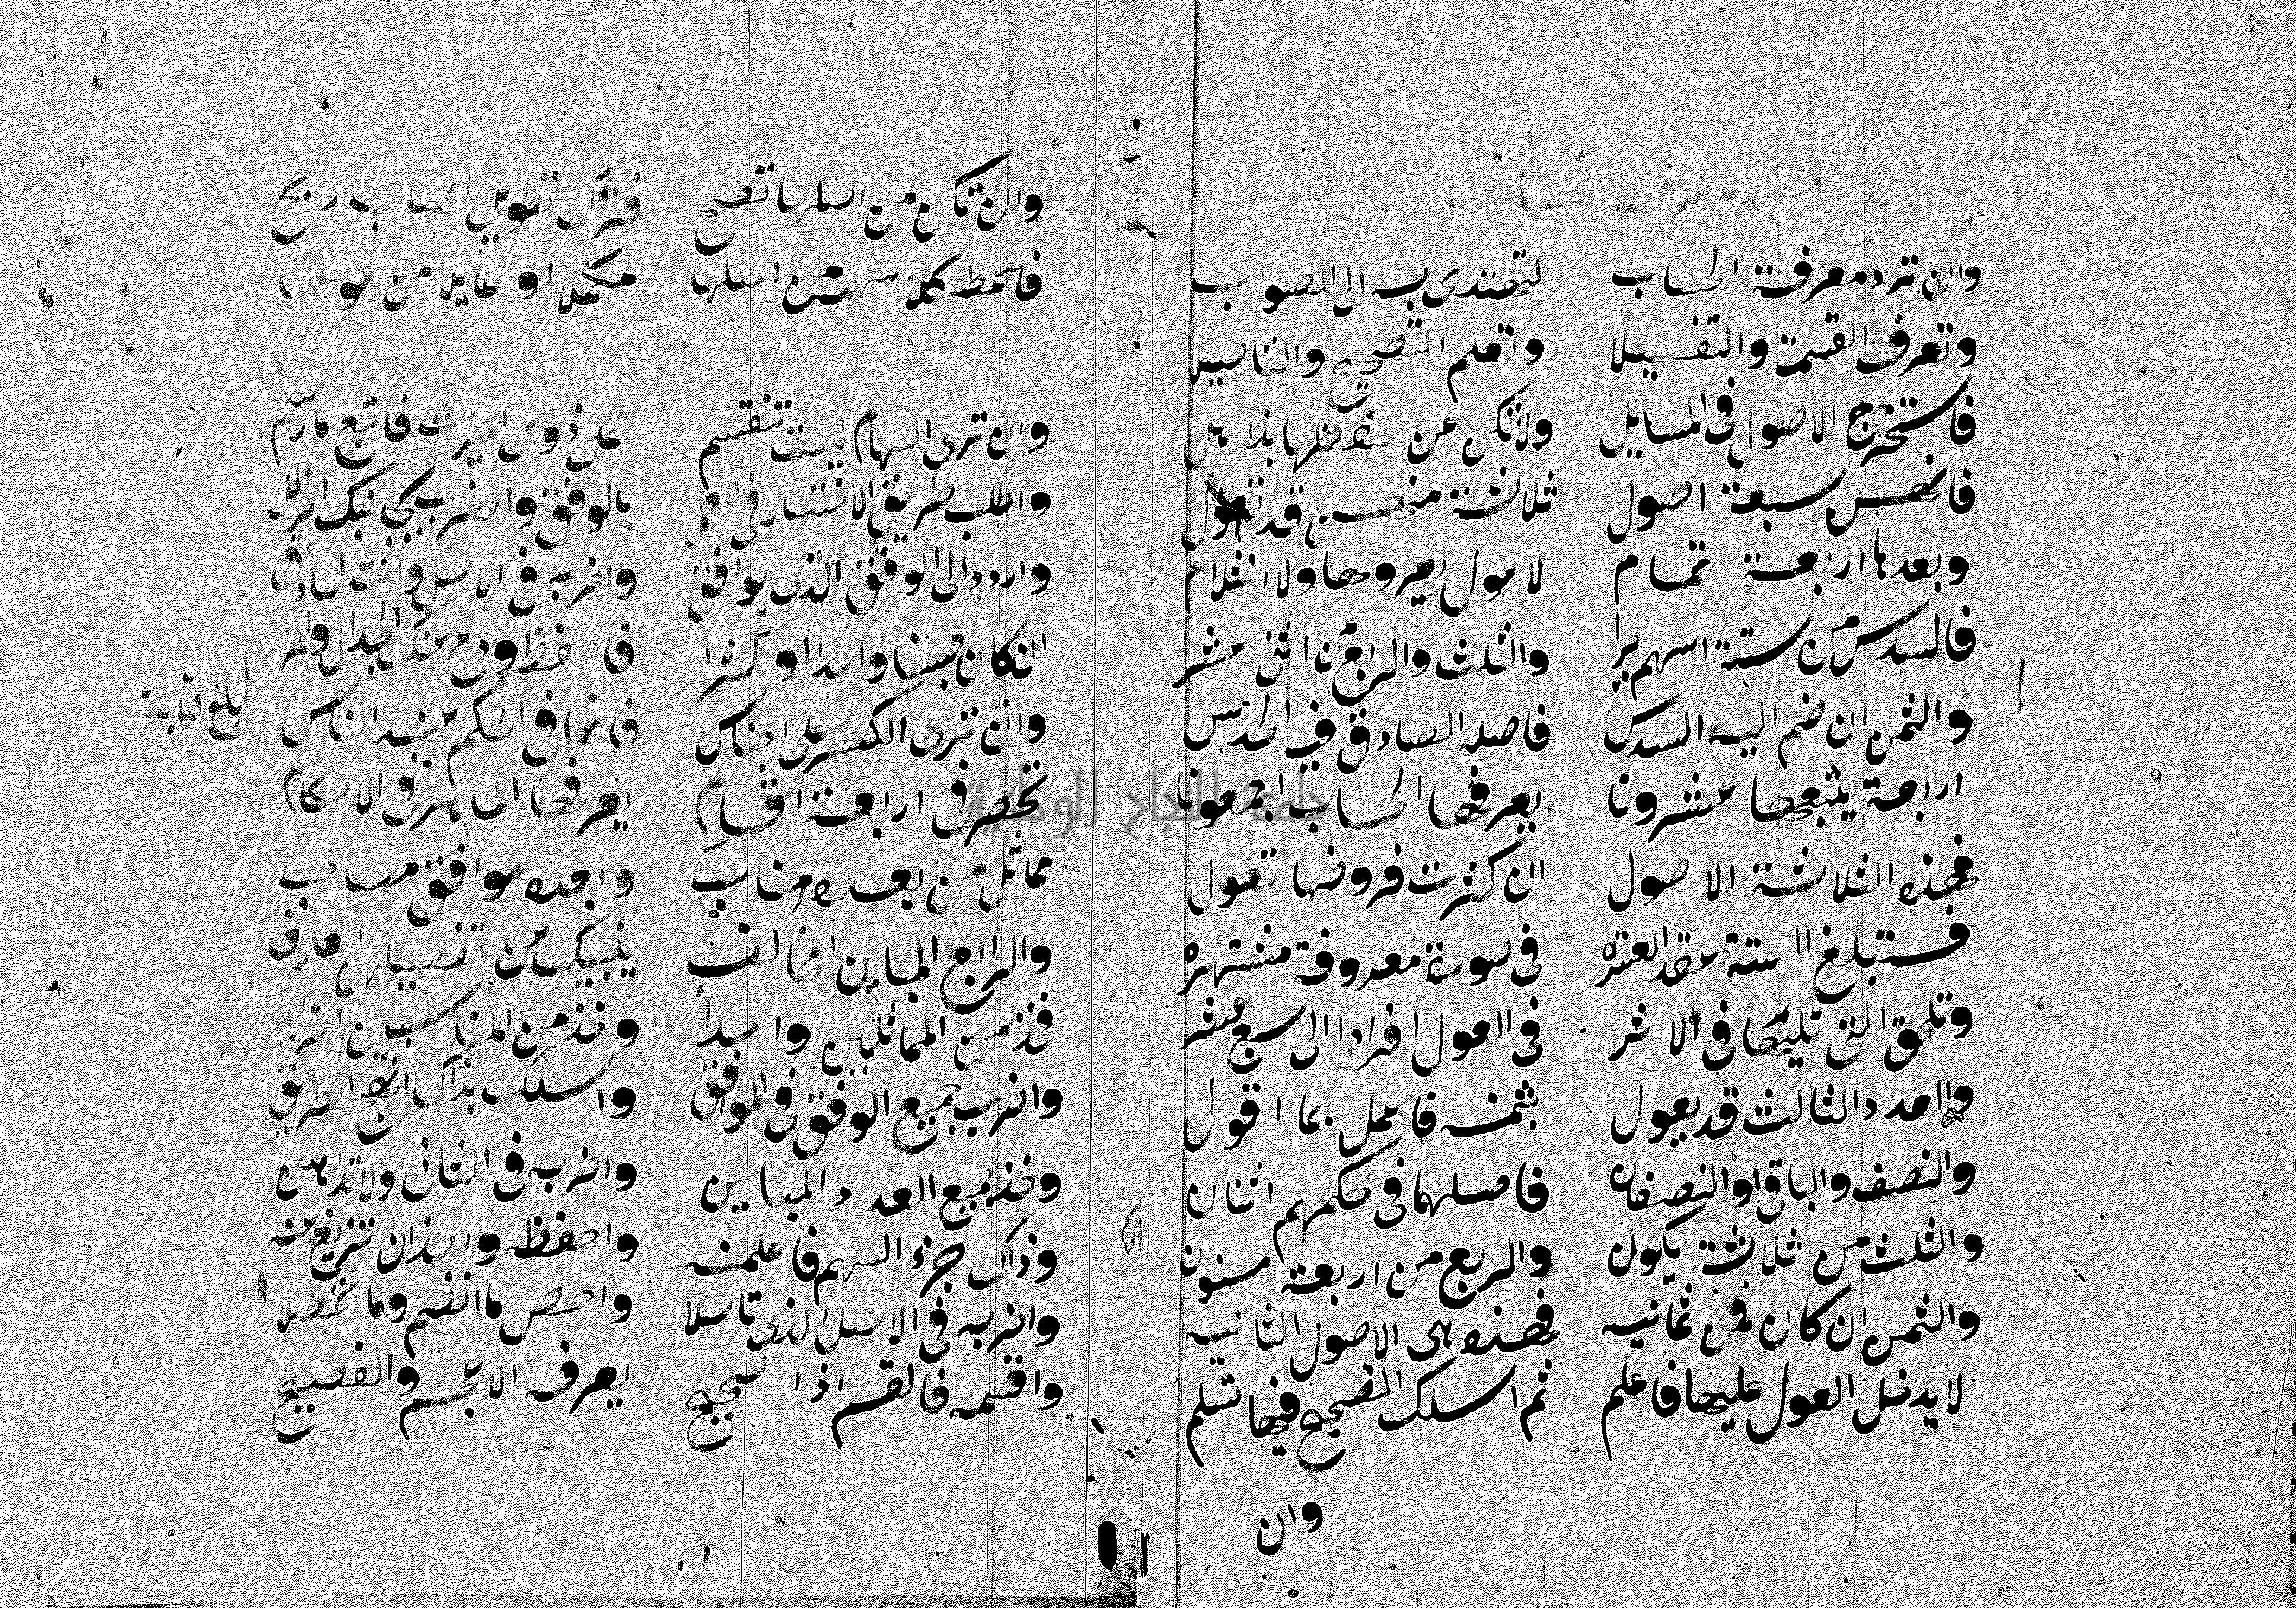 معرفة حساب
وان ترد معرفة الحساب لتهتدى به الى الصواب
وتعرف القسمة والتفصيلا وتعلم التصحيح والتاصيلا
فاستخرج الاصول فى المسايل ولا تكن عن حفظها بذاهل
فانهن سبعة اصول ثلاثة منهن قد تعول
وبعدها اربعة تمام لا عول يعروها ولا انثلام
فالسدس من ستة اسهم يرا والثلث والربع من اثنى عشرا
والثمن ان ضم اليه السدس فاصله الصادق فيه الحدس
اربعة يتبعها عشرونا يعرفها الحساب اجمعونا
فهذه الثلاثة الاصول ان كثرت فروضها تعول
فتبلغ الستة عقد العشره فى صورة معروفة مشتهره
وتلحق التى تليها فى الاثر فى العول افرادا الى سبع عشر
والعدد الثالث قد يعول بثمنه فاعمل بما اقول
والنصف والباقى او النصفان فاصلهما فى حكمهم اثنان
والثلث من ثلاثة يكون والربع من اربعة مسنون
والثمن ان كان فمن ثمانيه فهذه هى الاصول الثانيه
لا يدخل العول عليها فاعلم ثم اسلك التصحيح فيها تسلم
وان
وان تكن من اصلها تصح فترك تطويل الحساب ربح
فاعط كلا سهمه من اصلها مكملا او عايلا من عولها
وان ترى السهام ليست تنقسم على ذوى الميراث فاتبع ما رسم
واطلب طريق الاختصار فى العمل بالوفق والضرب يجانبك الزلل
واردد الى الوفق الذى يوافق واضربه فى الاصل فانت الحاذق
ان كان جنسا واحدا او كثرا فاحفظ ودع عنك الجدال والمرا
وان ترى الكسر على اجناس فانها فى الحكم عند الناس
تحصر فى اربعة اقسام يعرفها الماهر فى الاحكام
مماثل من بعده مناسب وبعده موافق مصاحب
والرابع المباين المخالف ينبيك عن تفصيلهن العارف
فخذ من المماثلين واحدا وخذ من المناسبين الزايد
واضرب جميع الوفق فى الموافق واسلك بذاك انهج الطرايق
وخذ جميع العدد المباين واضربه فى الثانى ولا تداهن
وذاك جزء السهم فاعلمنه واحفظه واحذر ان تزيغ عنه
واضربه فى الاصل الذى تاصلا واحص ما انضم وما تحصلا
واقسمه فالقسم اذا صحيح يعرفه الاعجم والفصيح
بلغ قابة
جامعة النجاح الوطنية